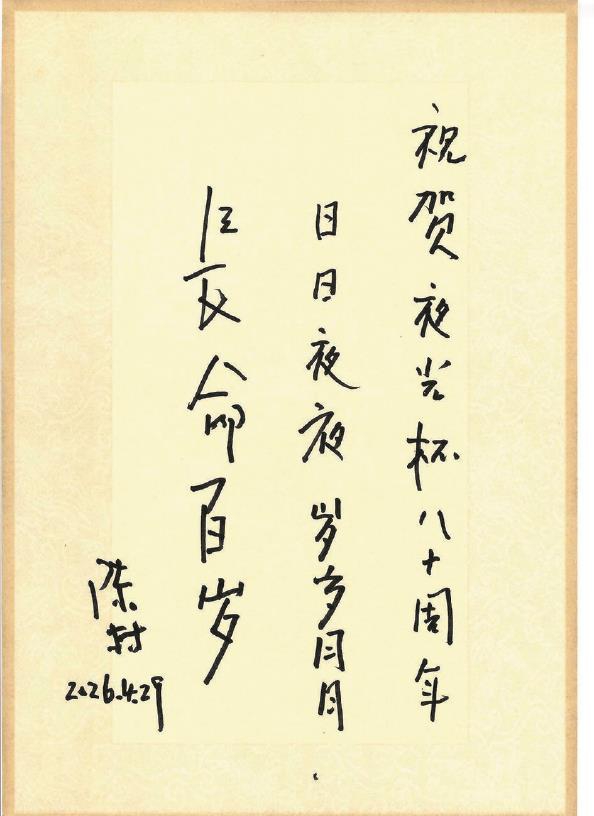 祝贺夜光杯八十周年
日日夜夜岁岁月月
长命百岁
陈村
2026.4.29